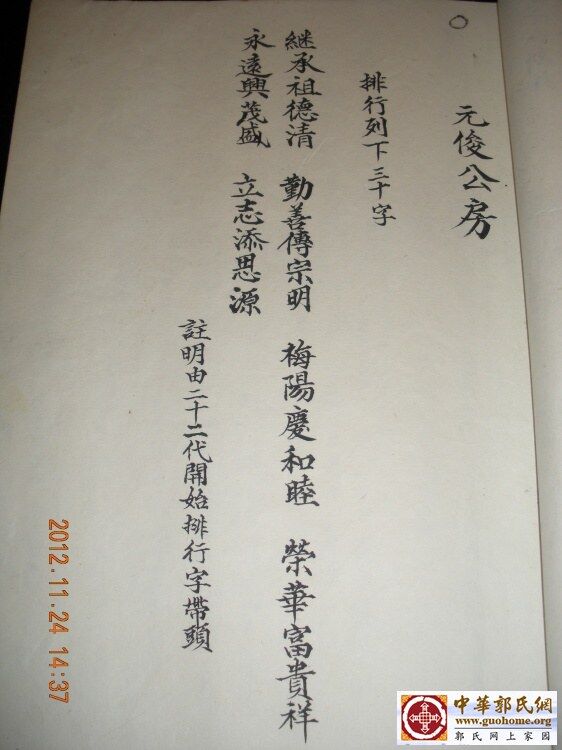 元俊公房
排行列下三十字
継承祖德清 勤善傳宗明 梅陽慶和睦 榮華富貴祥
永遠興茂盛 立志添思源
註明由二十二代開始排行字帶頭
2012.11.24 14:37
中華郭氏網
www.guohome.org
郭氏网上家园